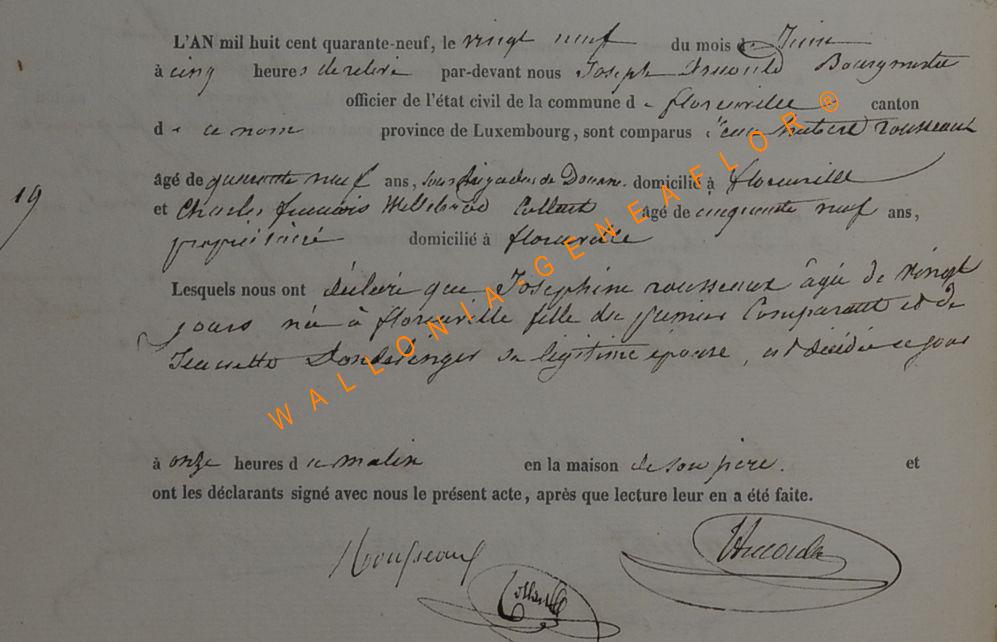 L'AN mil huit cent quarante-neuf, le vingt neuf du mois de Juin
à cinq heures de relevé par-devant nous Joseph Bourgmestre
officier de l'état civil de la commune de florenville canton
de ce nom province de Luxembourg, sont comparus hubert rousseaux
19
âgé de quarante neuf ans, sous Brigadier de Douane domicilié à florenville
et Charles francois Willebrod Collard âgé de cinquante neuf ans,
propriétaire domicilié à florenville
Lesquels nous ont déclaré que Josephine rousseaux âgée de vingt
jours née à florenville fille du premier Comparant et de
Jeannette Donderlinger sa légitime épouse, est décédée ce jour
à onze heures du matin en la maison de son père. et
ont les déclarants signé avec nous le présent acte, après que lecture leur en a été faite.
Rousseaux
Collard
WALLONIA-GENEAFLOR®